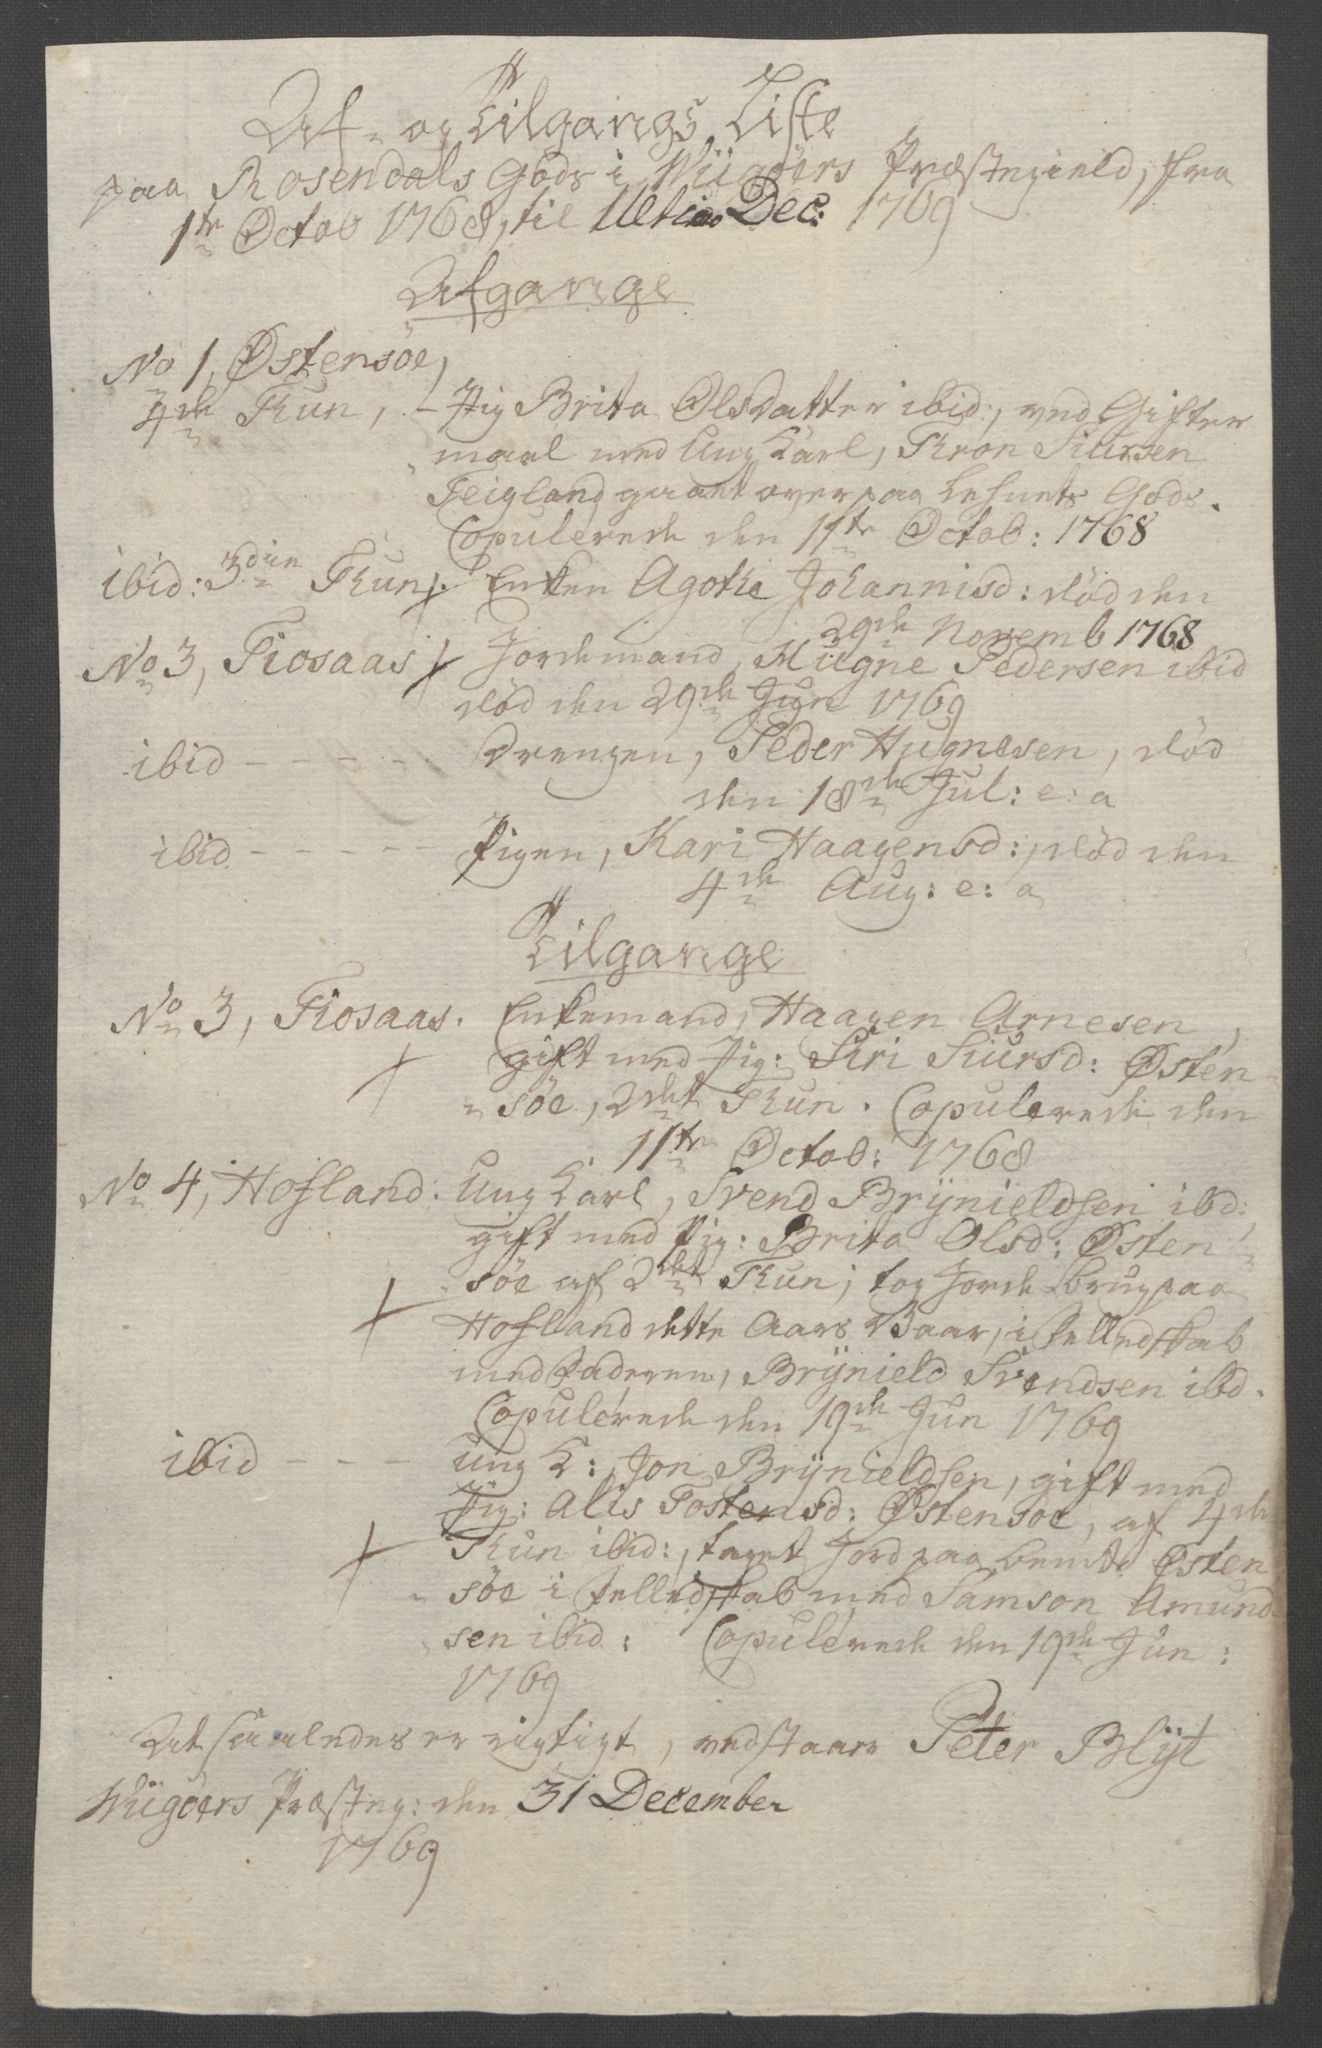 Af- og Tilgangs Liste
paa Rosendals Gods i Wiigöers Præstegield, fra
1te Octob 1768, til Ultimo Dec: 1769
Afgange
No 1, Østensöe,
4de Tun, - Pig Brita Olsdatter ibid:, ved Gifter
maal med Ung Karl, Tron Siursen
Teigland gaaet over paa Lehnets Gods.
Copulerede den 11te Octob: 1768
ibid: 3die Tun. Enken Agothe Johannisd: död den
29de Novemb 1768
No 3, Fiosaas Jordemand, Mügne Pedersen ibid
död den 29de Jun 1769
ibid - - - - - Drengen, Peder Hugnesen, död
den 18de Jul: e: a
ibid - - - - - Pigen, Kari Haagensd:, död den
4de Aug: e: a
Tilgange
No 3, Fiosaas. Enkemand, Haagen Arnesen,
gift med Pig: Siri Siursd: Østen-
söe, 2det Tun. Copulerede den
11te Octob: 1768
No 4, Hofland. Ung Karl, Svend Brÿnieldsen ibd:
gift med Pig: Brita Olsd: Østen-
söe af 2det Tun; tog Jordebrug paa
Hofland dette Aars Vaar, i Felledskab
med Faderen, Brÿnield Svendsen ibd.
Copulerede den 19de Jun 1769
ibid - - - Ung K: Jon Brÿnieldsen, gift med
Pig: Alis Tostensd: Østensöe, af 4de
Tun ibid:, taget Jord paa bemte Østen
söe i Fellidskab med Samson Amund
sen ibid: Copulerede den 19de Jun:
1769
At saaledes er rigtigt, vedstaar Peter Blÿt
Wiigöers Præsteg: den 31 December
1769